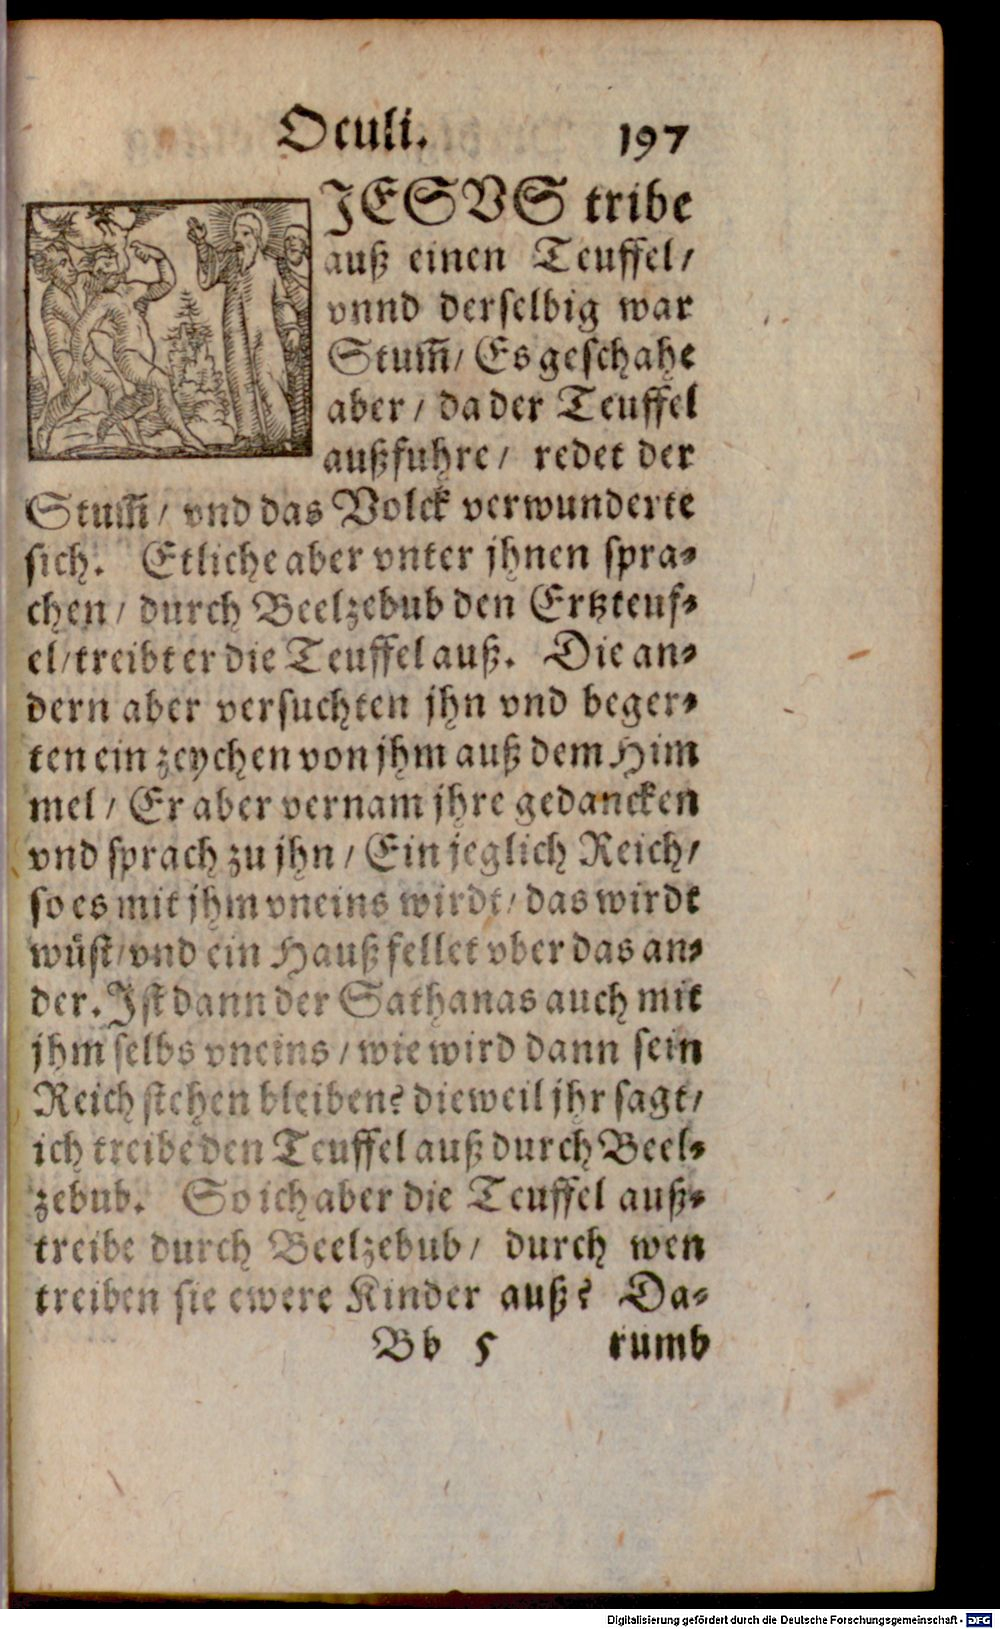 Oculi. 197
JESVS tribe
auß einen Teuffel/
vnnd derselbig war
Stum̃/ Es geschahe
aber/ da der Teuffel
außfuhre/ redet der
Stum̃/ vnd das Volck verwunderte
sich. Etliche aber vnter jhnen spra-
chen/ durch Beelzebub den Ertzteuf-
el/ treibt er die Teuffel auß. Die an-
dern aber versuchten jhn vnd beger-
ten ein zeychen von jhm auß dem Him
mel/ Er aber vernam jhre gedancken
vnd sprach zu jhn/ Ein jeglich Reich/
so es mit jhm vneins wirdt/ das wirdt
wüst/ vnd ein Hauß fellet vber das an-
der. Ist dann der Sathanas auch mit
jhm selbs vneins/ wie wird dann sein
Reich stehen bleiben? dieweil jhr sagt/
ich treibe den Teuffel auß durch Beel-
zebub. So ich aber die Teuffel auß-
treibe durch Beelzebub/ durch wen
treiben sie ewere Kinder auß? Da-
Bb 5 rumb
Digitalisierung gefördert durch die Deutsche Forschungsgemeinschaft - DFG